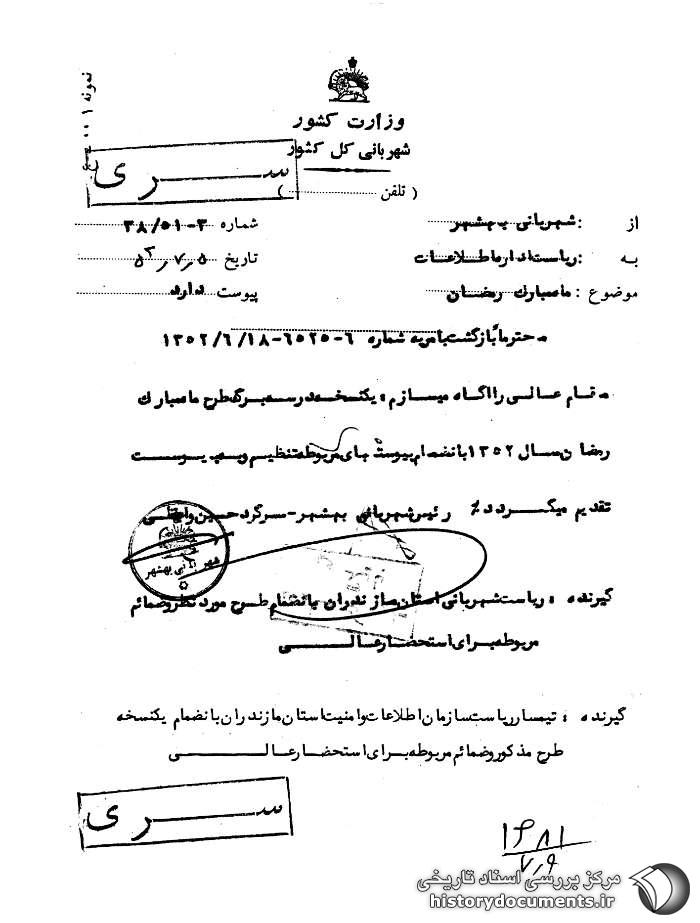 نمونه ۱
وزارت کشور
شهربانی کل کشور
سری
( تلفن )
از : شهربانی بهشهر
شماره ۳-۳۸/۵۱
به : ریاست اداره اطلاعات
تاریخ ۵۲٫۷٫۵
موضوع : ماه مبارک رمضان
پیوست دارد
محترما بازگشت بامریه شماره ۶-۶۵۲۵-۱۳۵۲/۶/۱۸
مقام عالی را آگاه میسازم ، یکنسخه در سه برگ طرح ماه مبارک
رمضان سال ۱۳۵۲ با نضمام پیوست های مربوطه تنظیم و به پیوست
تقدیم میگردد٪ رئیس شهربانی بهشهر-سرگرد حسین
شهربانی بهشهر
گیرنده : ریاست شهربانی استان مازندران بانضمام طرح مورد نظر و ضمائم
مربوطه برای استحضار عالی
گیرنده : تیمسار ریاست سازمان اطلاعات وامنیت استان مازندران بانضمام یکنسخه
طرح مذکور و ضمائم مربوطه برای استحضار عالی
سری
۷٫۹
مرکز بررسی اسناد تاریخی
historydocuments.ir